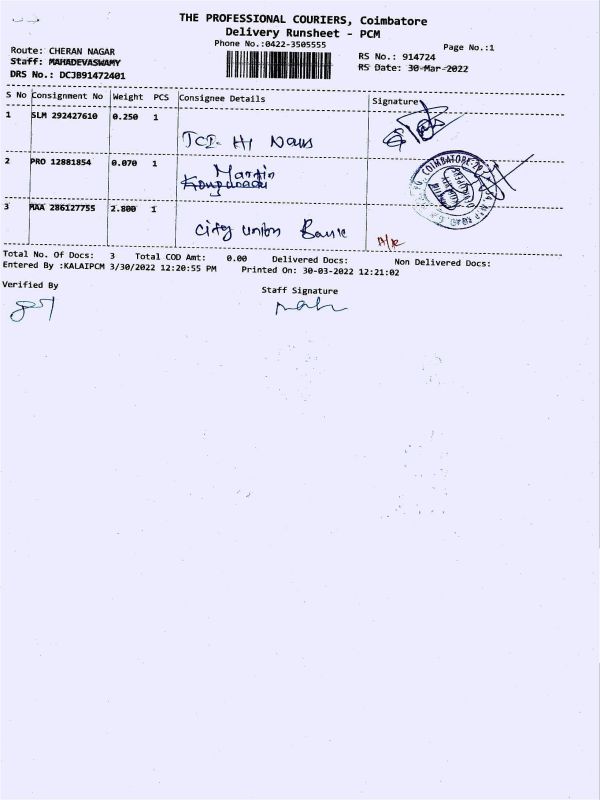 THE PROFESSIONAL COURIERS, Coimbatore
Delivery Runsheet - PCM
Phone No.:0422-3505555
Page No.:1
Route: CHERAN NAGAR
RS No.: 914724
Staff: MAHADEVASWAMY
RS Date: 30-Mar-2022
DRS No.: DCJB91472401
S No Consignment No Weight PCS Consignee Details Signature
1 SLM 292427610 0.250 1
2 PRO 12881854 0.070 1
Martin
3 MAA 286127755 2.800 1
City union Bank
Total No. Of Docs: 3 Total COD Amt: 0.00 Delivered Docs: Non Delivered Docs:
Entered By :KALAIPCM 3/30/2022 12:20:55 PM Printed On: 30-03-2022 12:21:02
Verified By Staff Signature